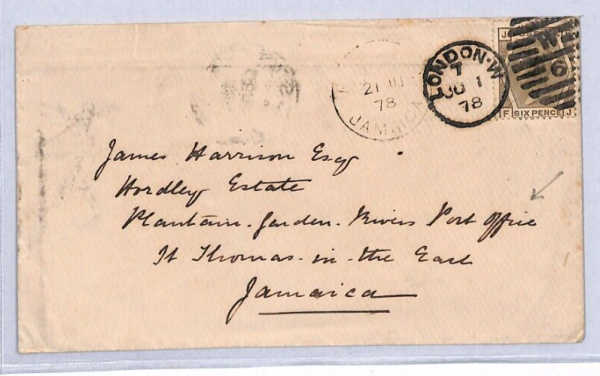 LONDON·W
7
JU 1
78
21
78
JAMAICA
W
6
F SIX PENCE J
James Harrison Esq
Hordley Estate
Plantain-Garden-River Post Office
St Thomas-in-the East
Jamaica